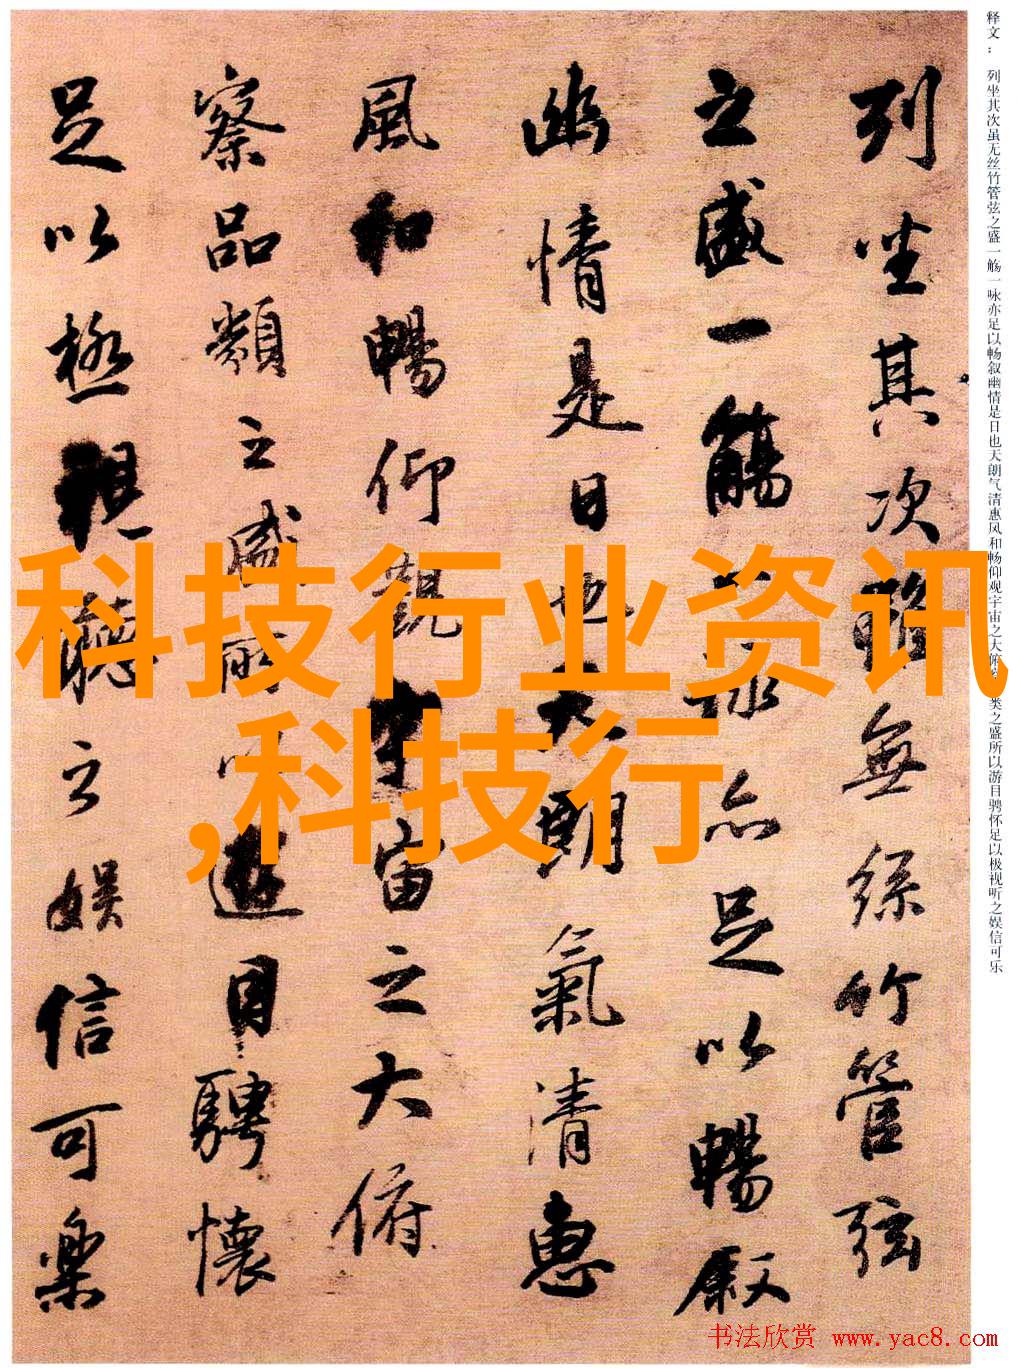 释文：列坐其次虽无丝竹管弦之盛一觞一咏亦足以畅叙幽情是日也天朗气清惠风和畅仰观宇宙之大俯类之盛所以游目骋怀足以极视听之娱信可乐
列坐其次雖無絲竹管弦
之盛一觴一詠亦足以暢叙
幽情是日也天朗氣清惠
風和暢仰觀宇宙之大俯
察品類之盛所以遊目騁懷
足以極視聽之娛信可樂
科技行业资讯
,科技行
书法欣赏 www.yac8.com